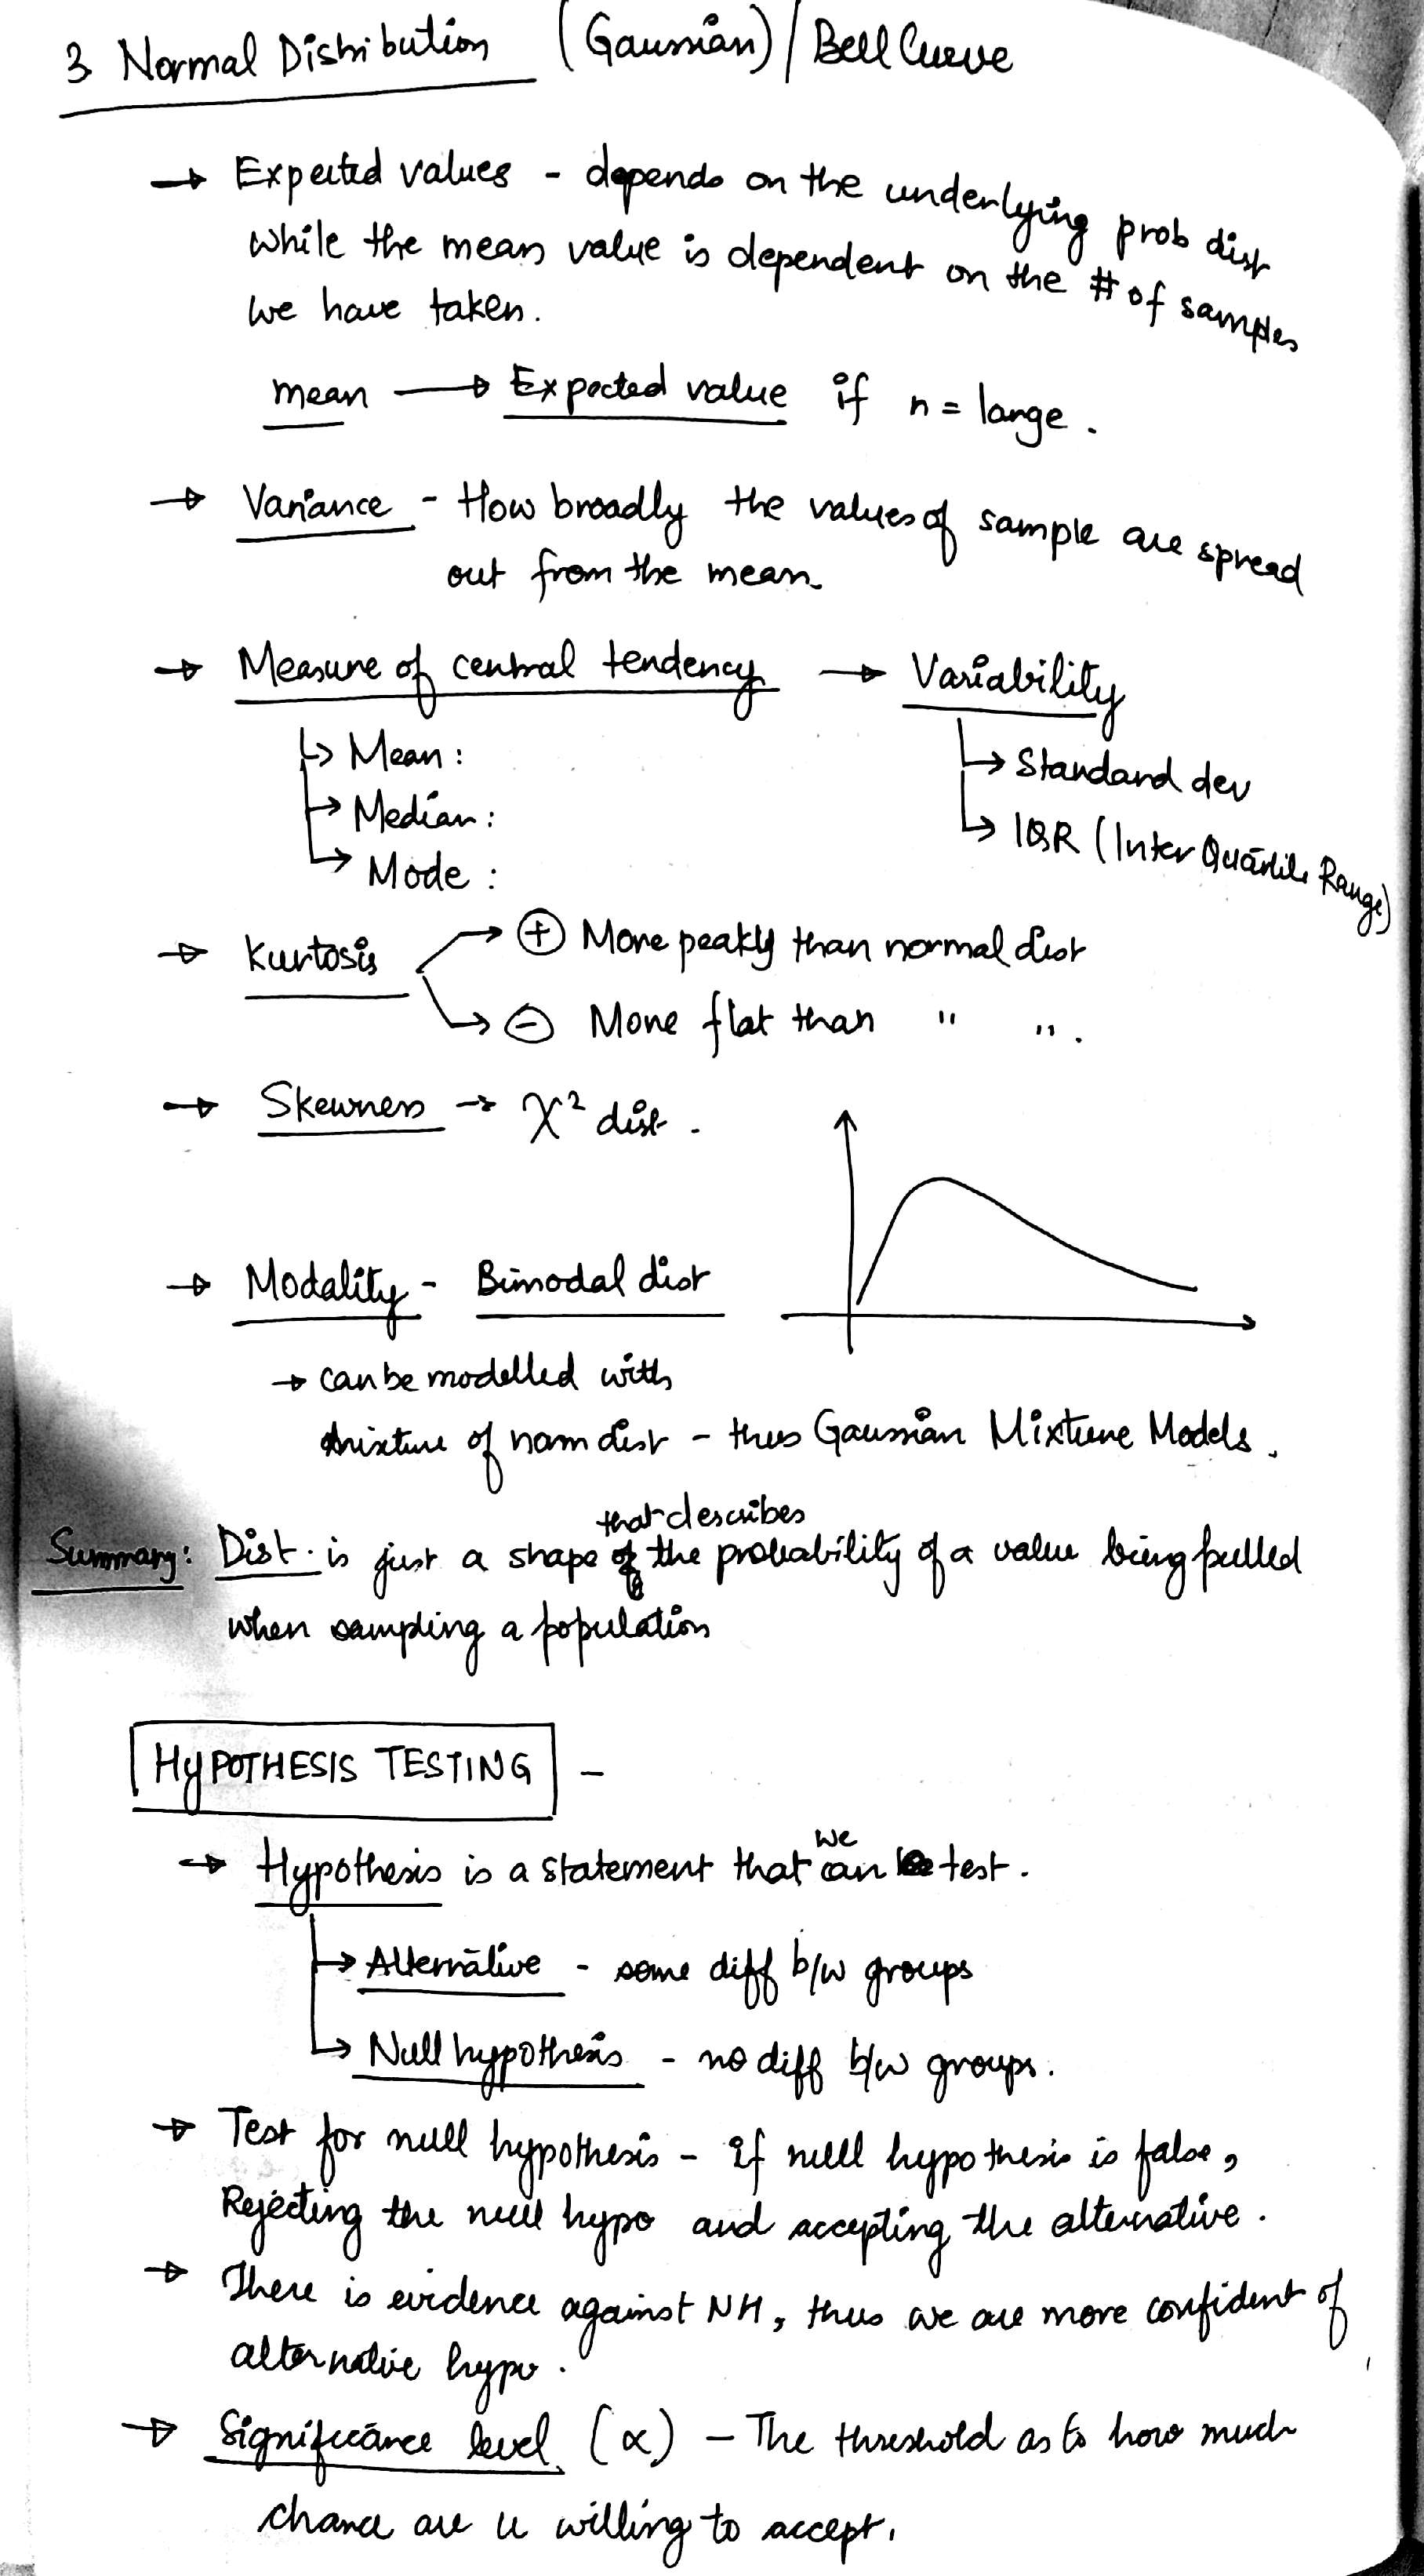 3 Normal Distribution (Gaussian) / Bell Curve
→ Expected values - depends on the underlying prob dist
while the mean value is dependent on the # of samples
we have taken.
mean → Expected value if n = large.
→ Variance - How broadly the values of sample are spread
out from the mean.
→ Measure of central tendency → Variability
↳ Mean :
→ Median :
↳ Mode :
→ Standard dev
↳ IQR (Inter Quartile Range)
→ Kurtosis → ⊕ More peaky than normal dist
↳ ⊖ More flat than " ".
→ Skewness → χ² dist.
→ Modality - Bimodal dist
→ can be modelled with
mixture of norm dist - thus Gaussian Mixture Models.
that describes
Summary: Dist. is just a shape the probability of a value being pulled
when sampling a population
HYPOTHESIS TESTING -
→ Hypothesis is a statement that we can test.
→ Alternative - some diff b/w groups
↳ Null hypothesis - no diff b/w groups.
→ Test for null hypothesis - if null hypothesis is false,
Rejecting the null hypo and accepting the alternative.
→ There is evidence against NH, thus we are more confident of
alternative hypo.
→ Significance level (α) - The threshold as to how much
chance are u willing to accept.